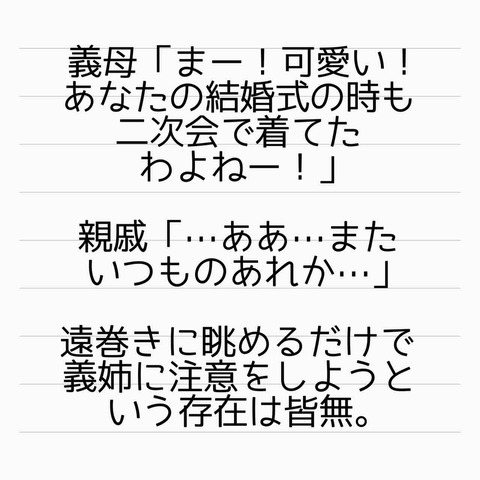 義母「まー！可愛い！
あなたの結婚式の時も
二次会で着てた
わよねー！」
親戚「…ああ…また
いつものあれか…」
遠巻きに眺めるだけで
義姉に注意をしようと
いう存在は皆無。